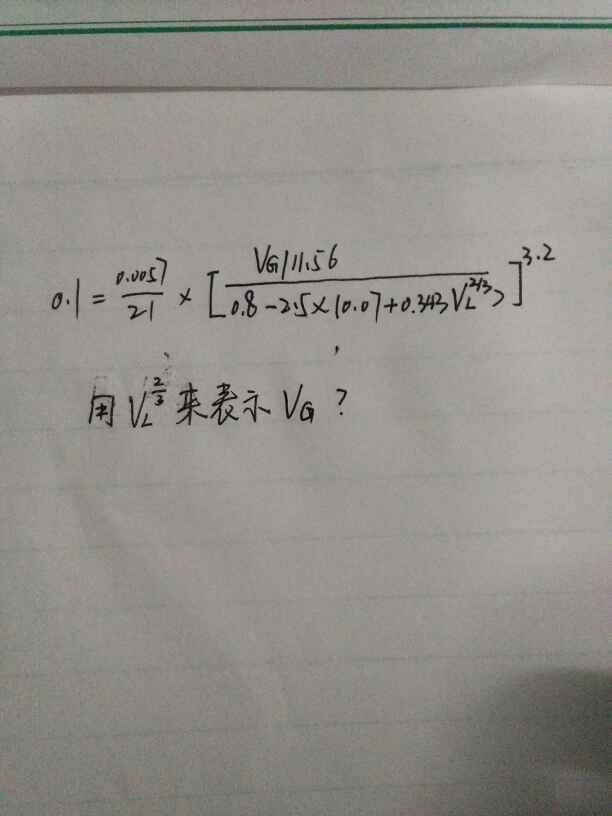 0.1 = 0.0057/21 × [VG/11.56 / 0.8-2.5×(0.07+0.343VL^2/3)]^3.2
用 VL^2/3 来表示 VG ?